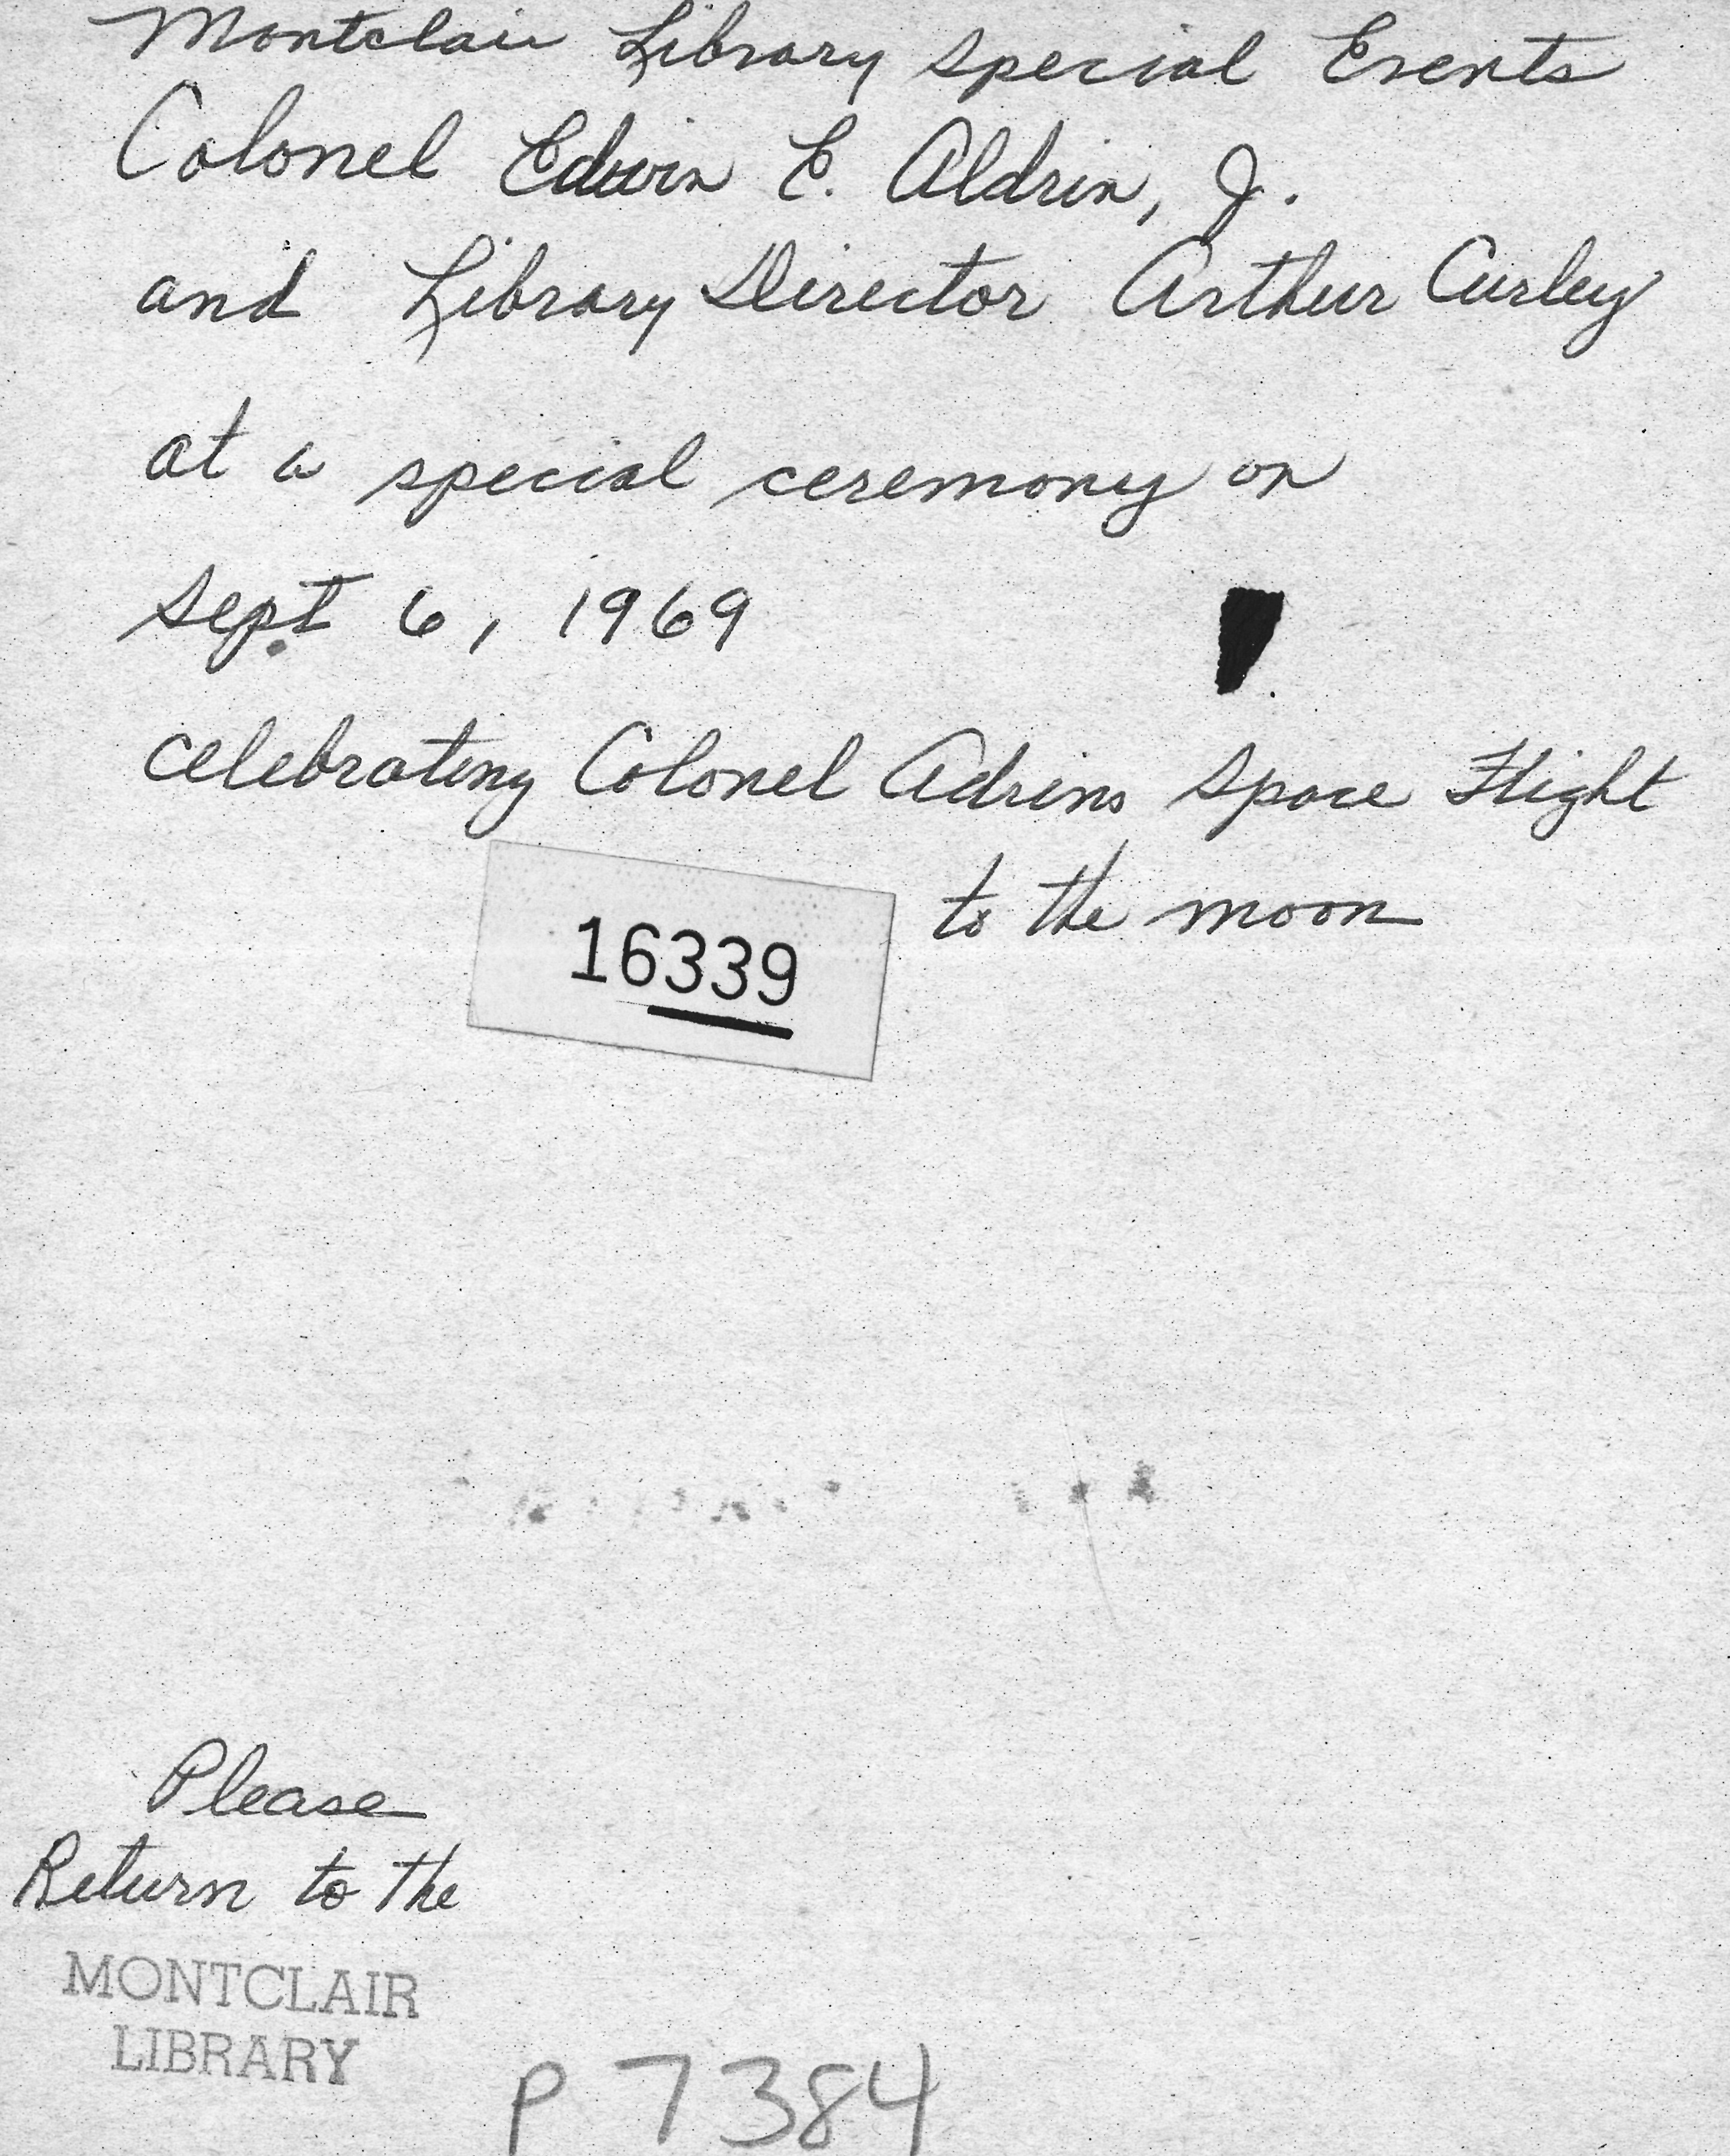 Montclair Library Special Events
Colonel Edwin E. Aldrin, J.
and Library Director Arthur Curley
at a special ceremony on
Sept 6, 1969
celebrating Colonel Adrins Space Flight
to the moon
16339
Please
Return to the
MONTCLAIR
LIBRARY
P 7384